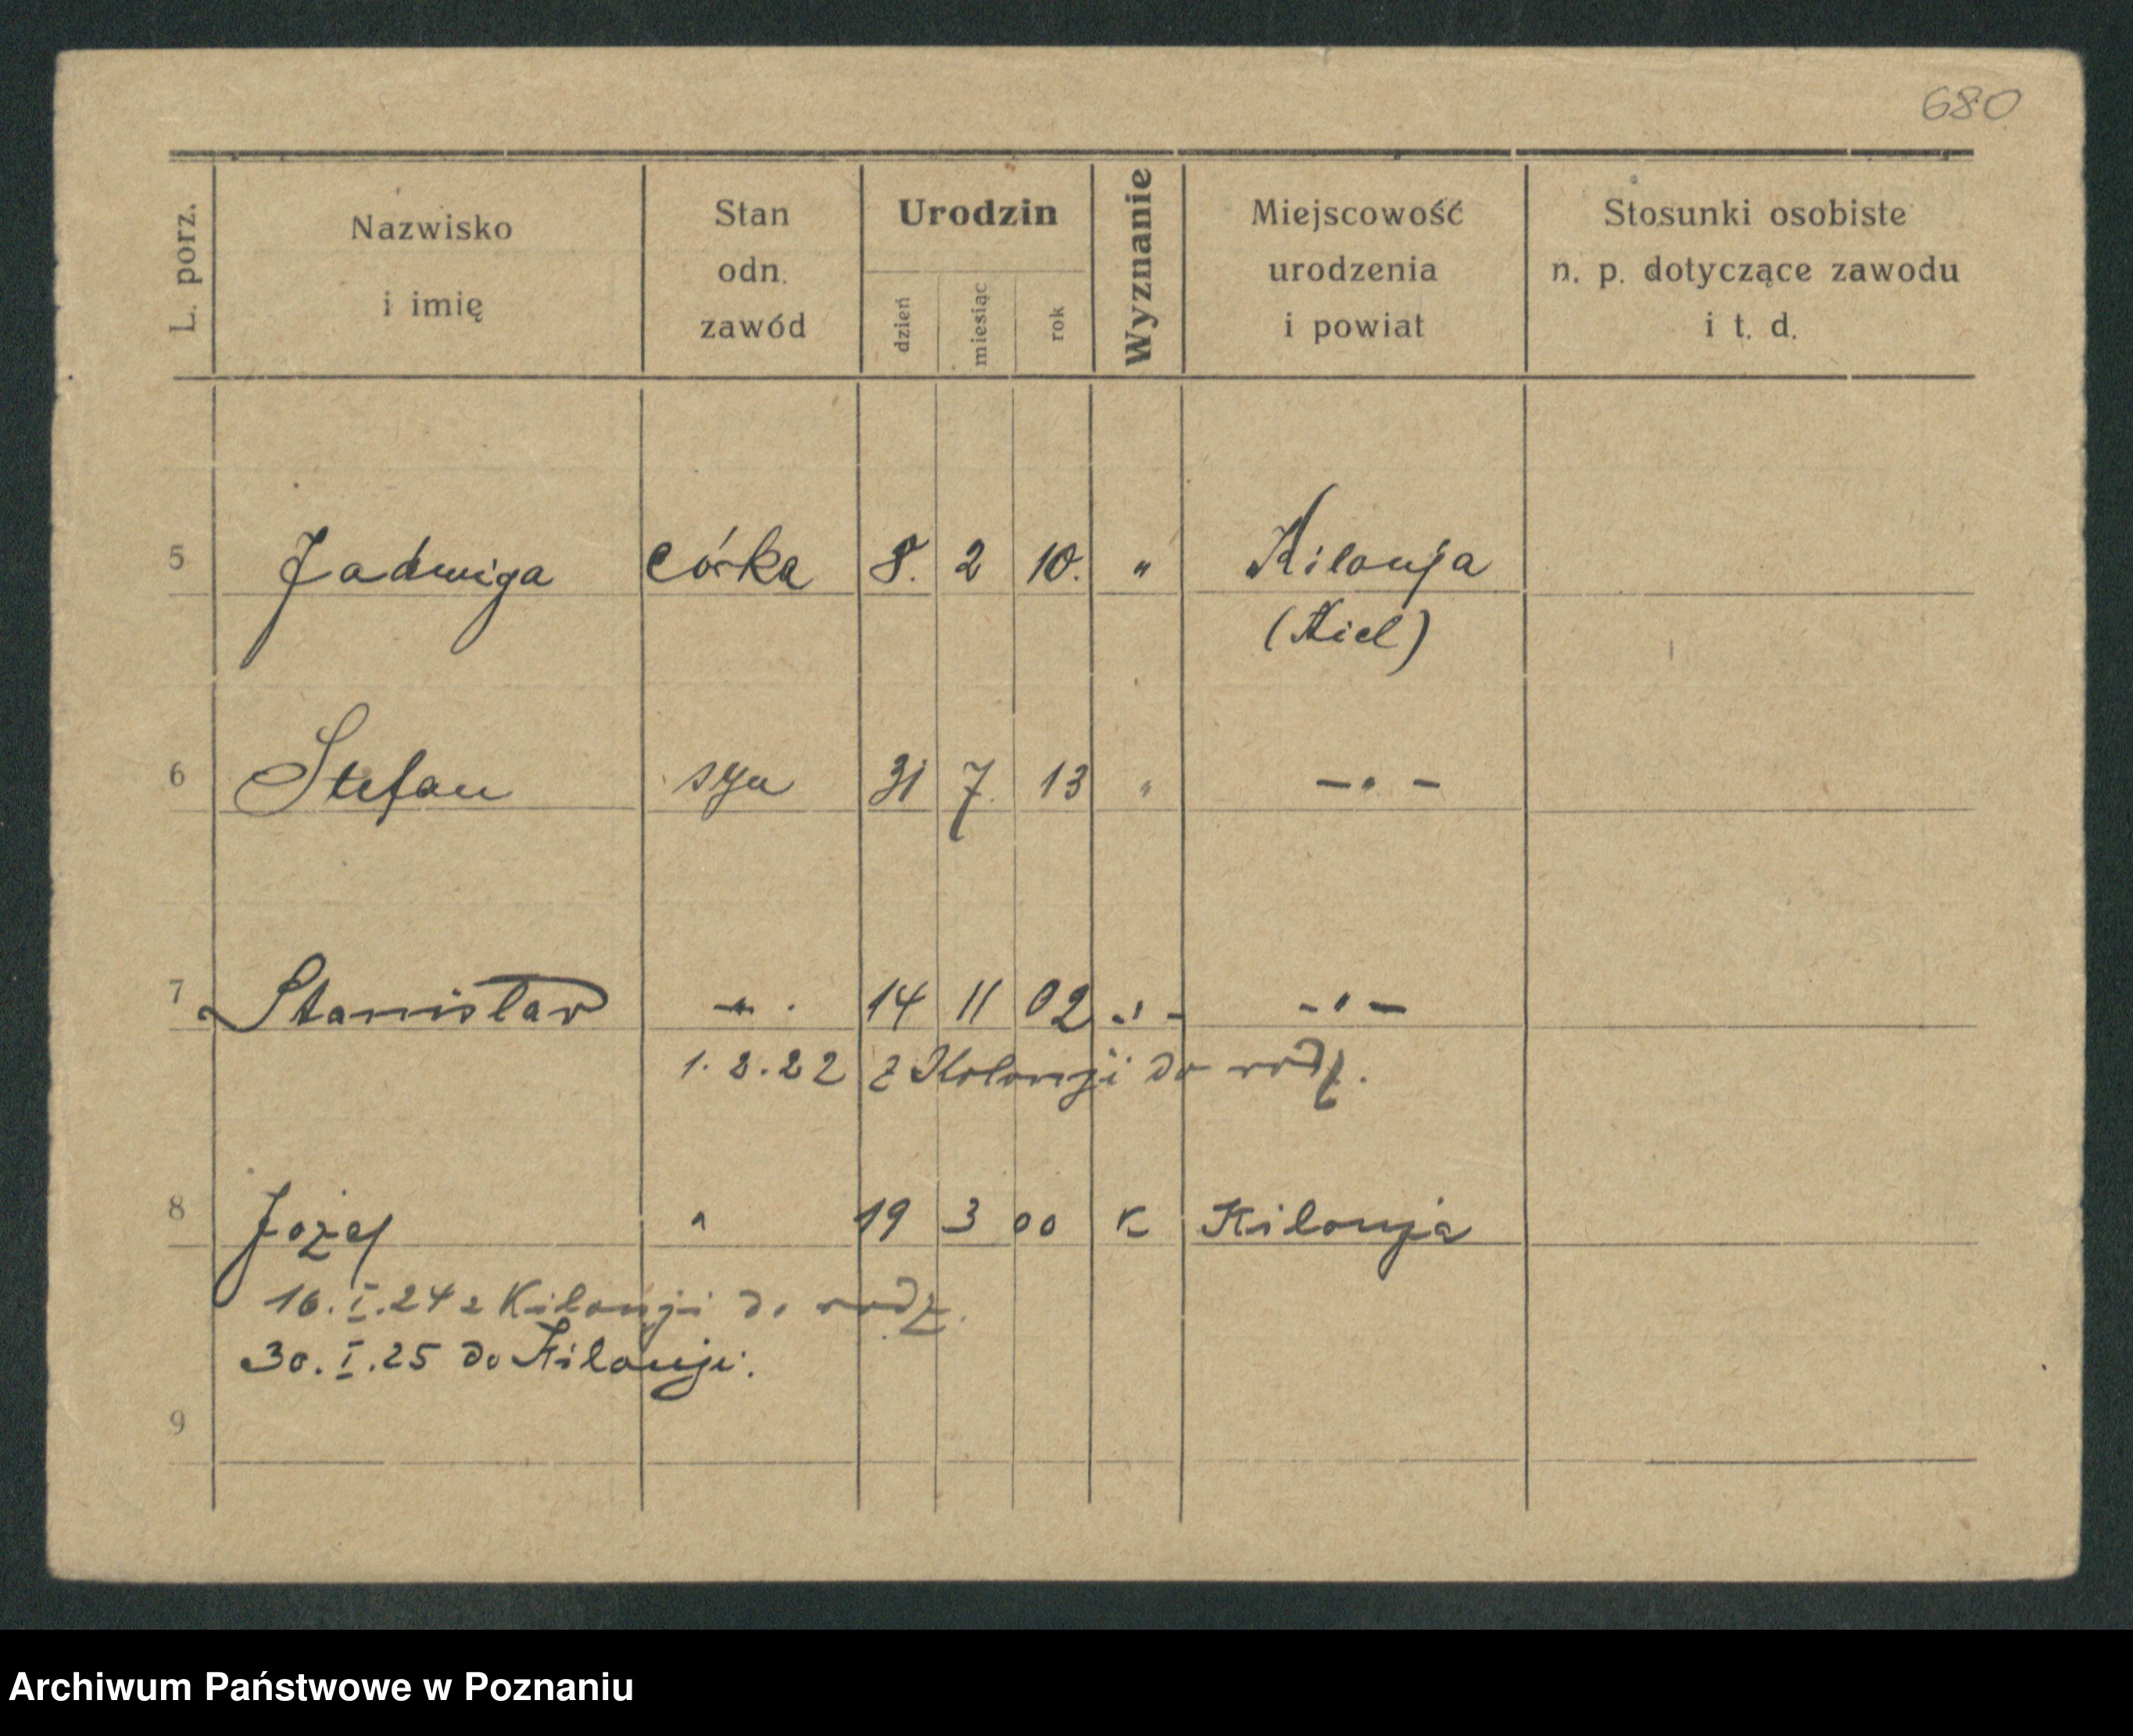 680
L. porz.
Nazwisko i imię
Stan odn. zawód
Urodzin
dzień miesiąc rok
Wyznanie
Miejscowość urodzenia i powiat
Stosunki osobiste n. p. dotyczące zawodu i t. d.
5 Jadwiga córka 8. 2 10. " Kilonja
(Kiel)
6 Stefan syn 31 7. 13 " -"-
7 Stanisław -"- 14 11 02 -"- -"-
1.8.22 z Kolonji do rodz.
8 Józef " 19 3 00 K Kilonja
16.I.24 z Kilonji do rodz.
30.I.25 do Kilonji.
9
Archiwum Państwowe w Poznaniu